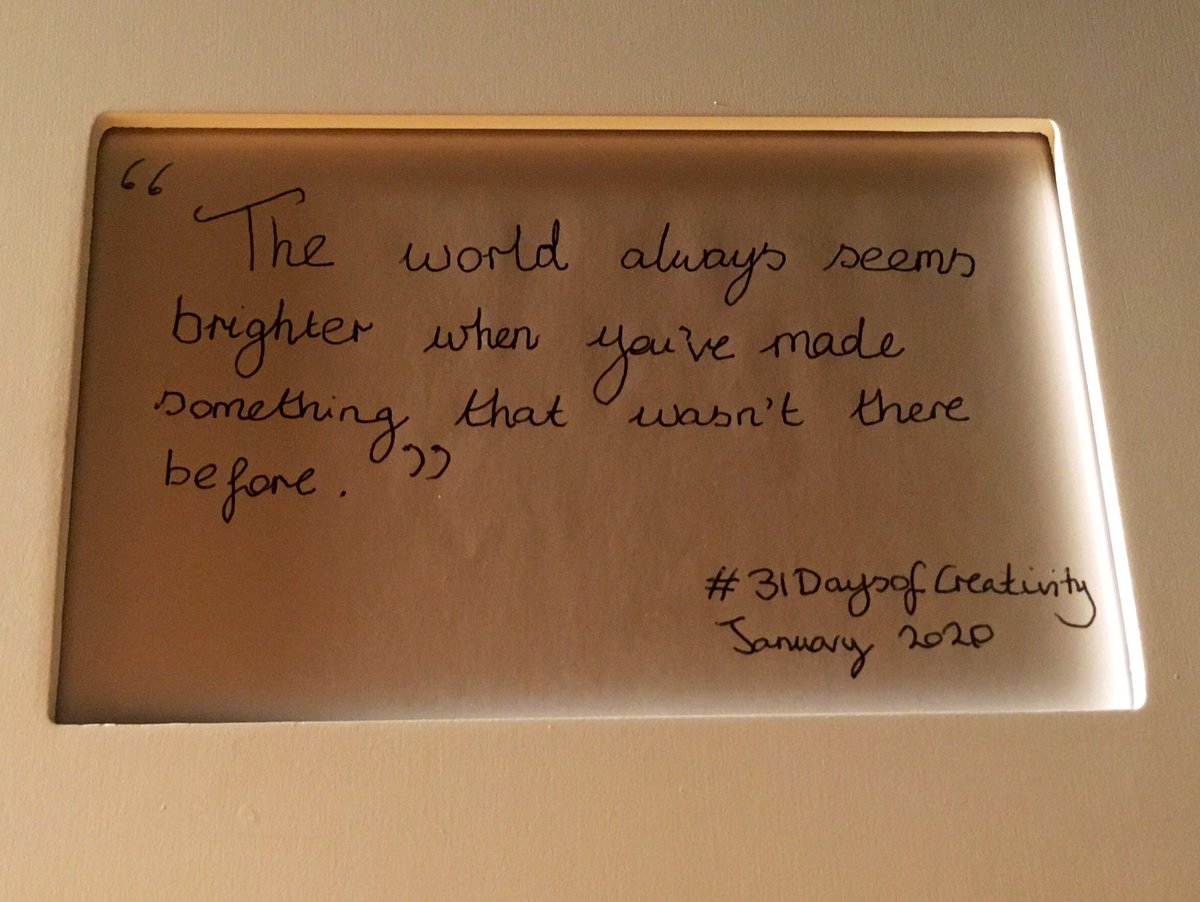 “The world always seems
brighter when you've made
something that wasn't there
before.”
#31DaysofCreativity
January 2020